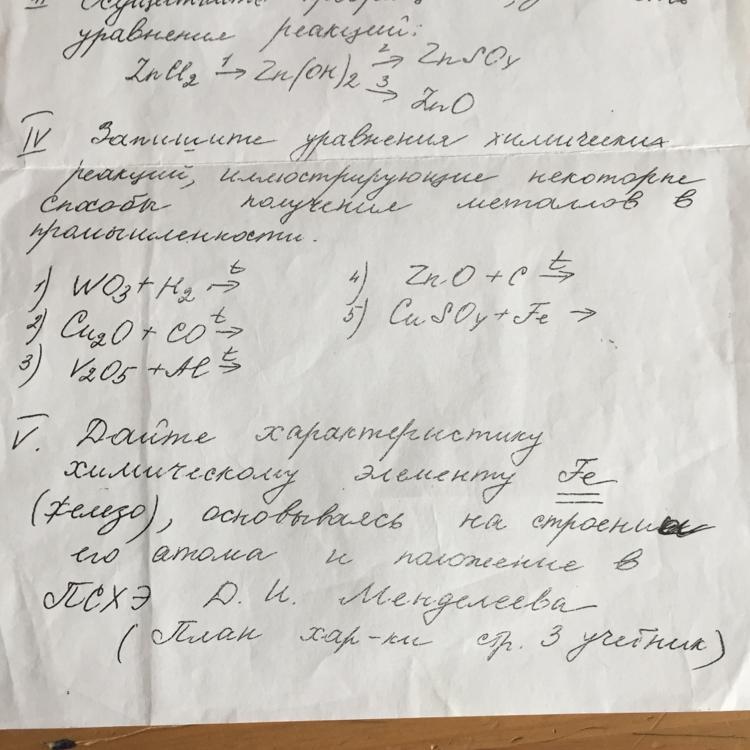 III Осуществите
уравнения реакций:
ZnCl2 1→ Zn(OH)2 2→ ZnSO4
3→ ZnO
IV Запишите уравнения химических
реакций, иллюстрирующие некоторые
способы получения металлов в
промышленности.
1) WO3 + H2 t→ 4) ZnO + C t→
2) Cu2O + CO t→ 5) CuSO4 + Fe →
3) V2O5 + Al t→
V. Дайте характеристику
химическому элементу Fe
(железо), основываясь на строении
его атома и положение в
ПСХЭ Д. И. Менделеева
(План хар-ки стр. 3 учебник)